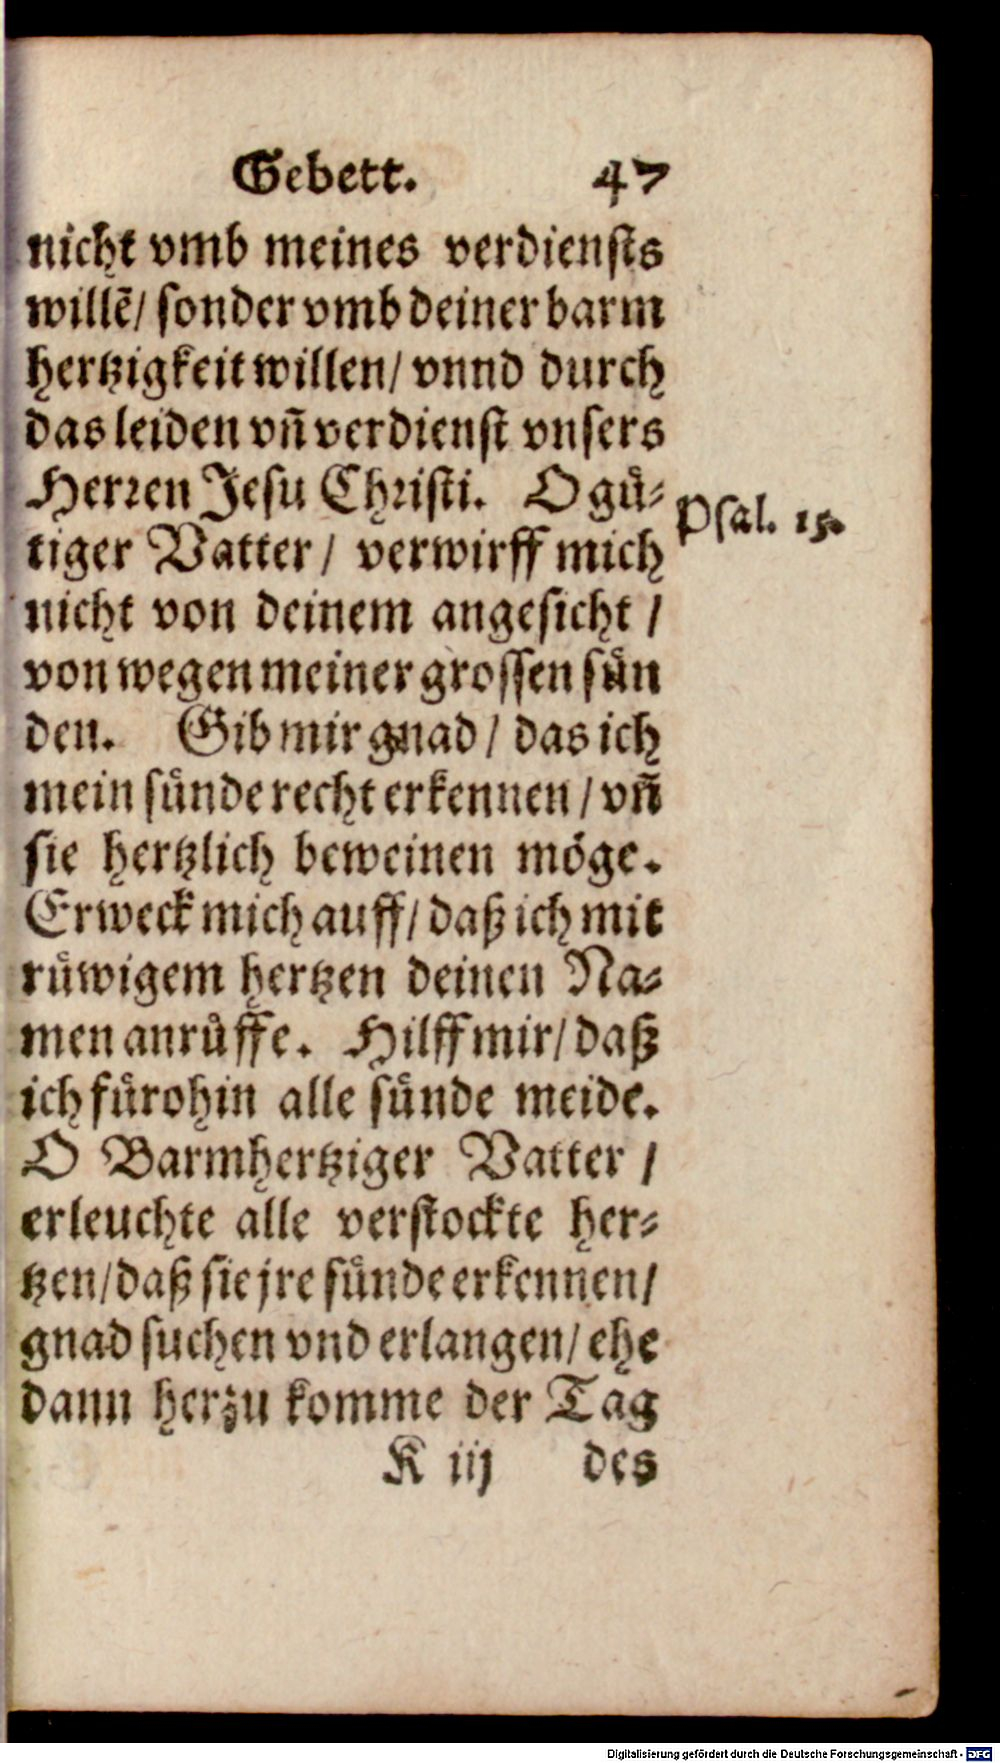 Gebett. 47
nicht vmb meines verdiensts
willẽ/ sonder vmb deiner barm
hertzigkeit willen/ vnnd durch
das leiden vñ verdienst vnsers
Herren Jesu Christi. O guͤ-
Psal. 15.
tiger Vatter / verwirff mich
nicht von deinem angesicht /
von wegen meiner grossen suͤn
den. Gib mir gnad / das ich
mein suͤnde recht erkennen / vñ
sie hertzlich beweinen moͤge.
Erweck mich auff/ daß ich mit
ruͤwigem hertzen deinen Na-
men anruͤffe. Hilff mir/ daß
ich fuͤrohin alle suͤnde meide.
O Barmhertziger Vatter /
erleuchte alle verstockte her-
tzen/ daß sie jre suͤnde erkennen/
gnad suchen vnd erlangen/ ehe
dann herzu komme der Tag
K iij des
Digitalisierung gefördert durch die Deutsche Forschungsgemeinschaft - DFG